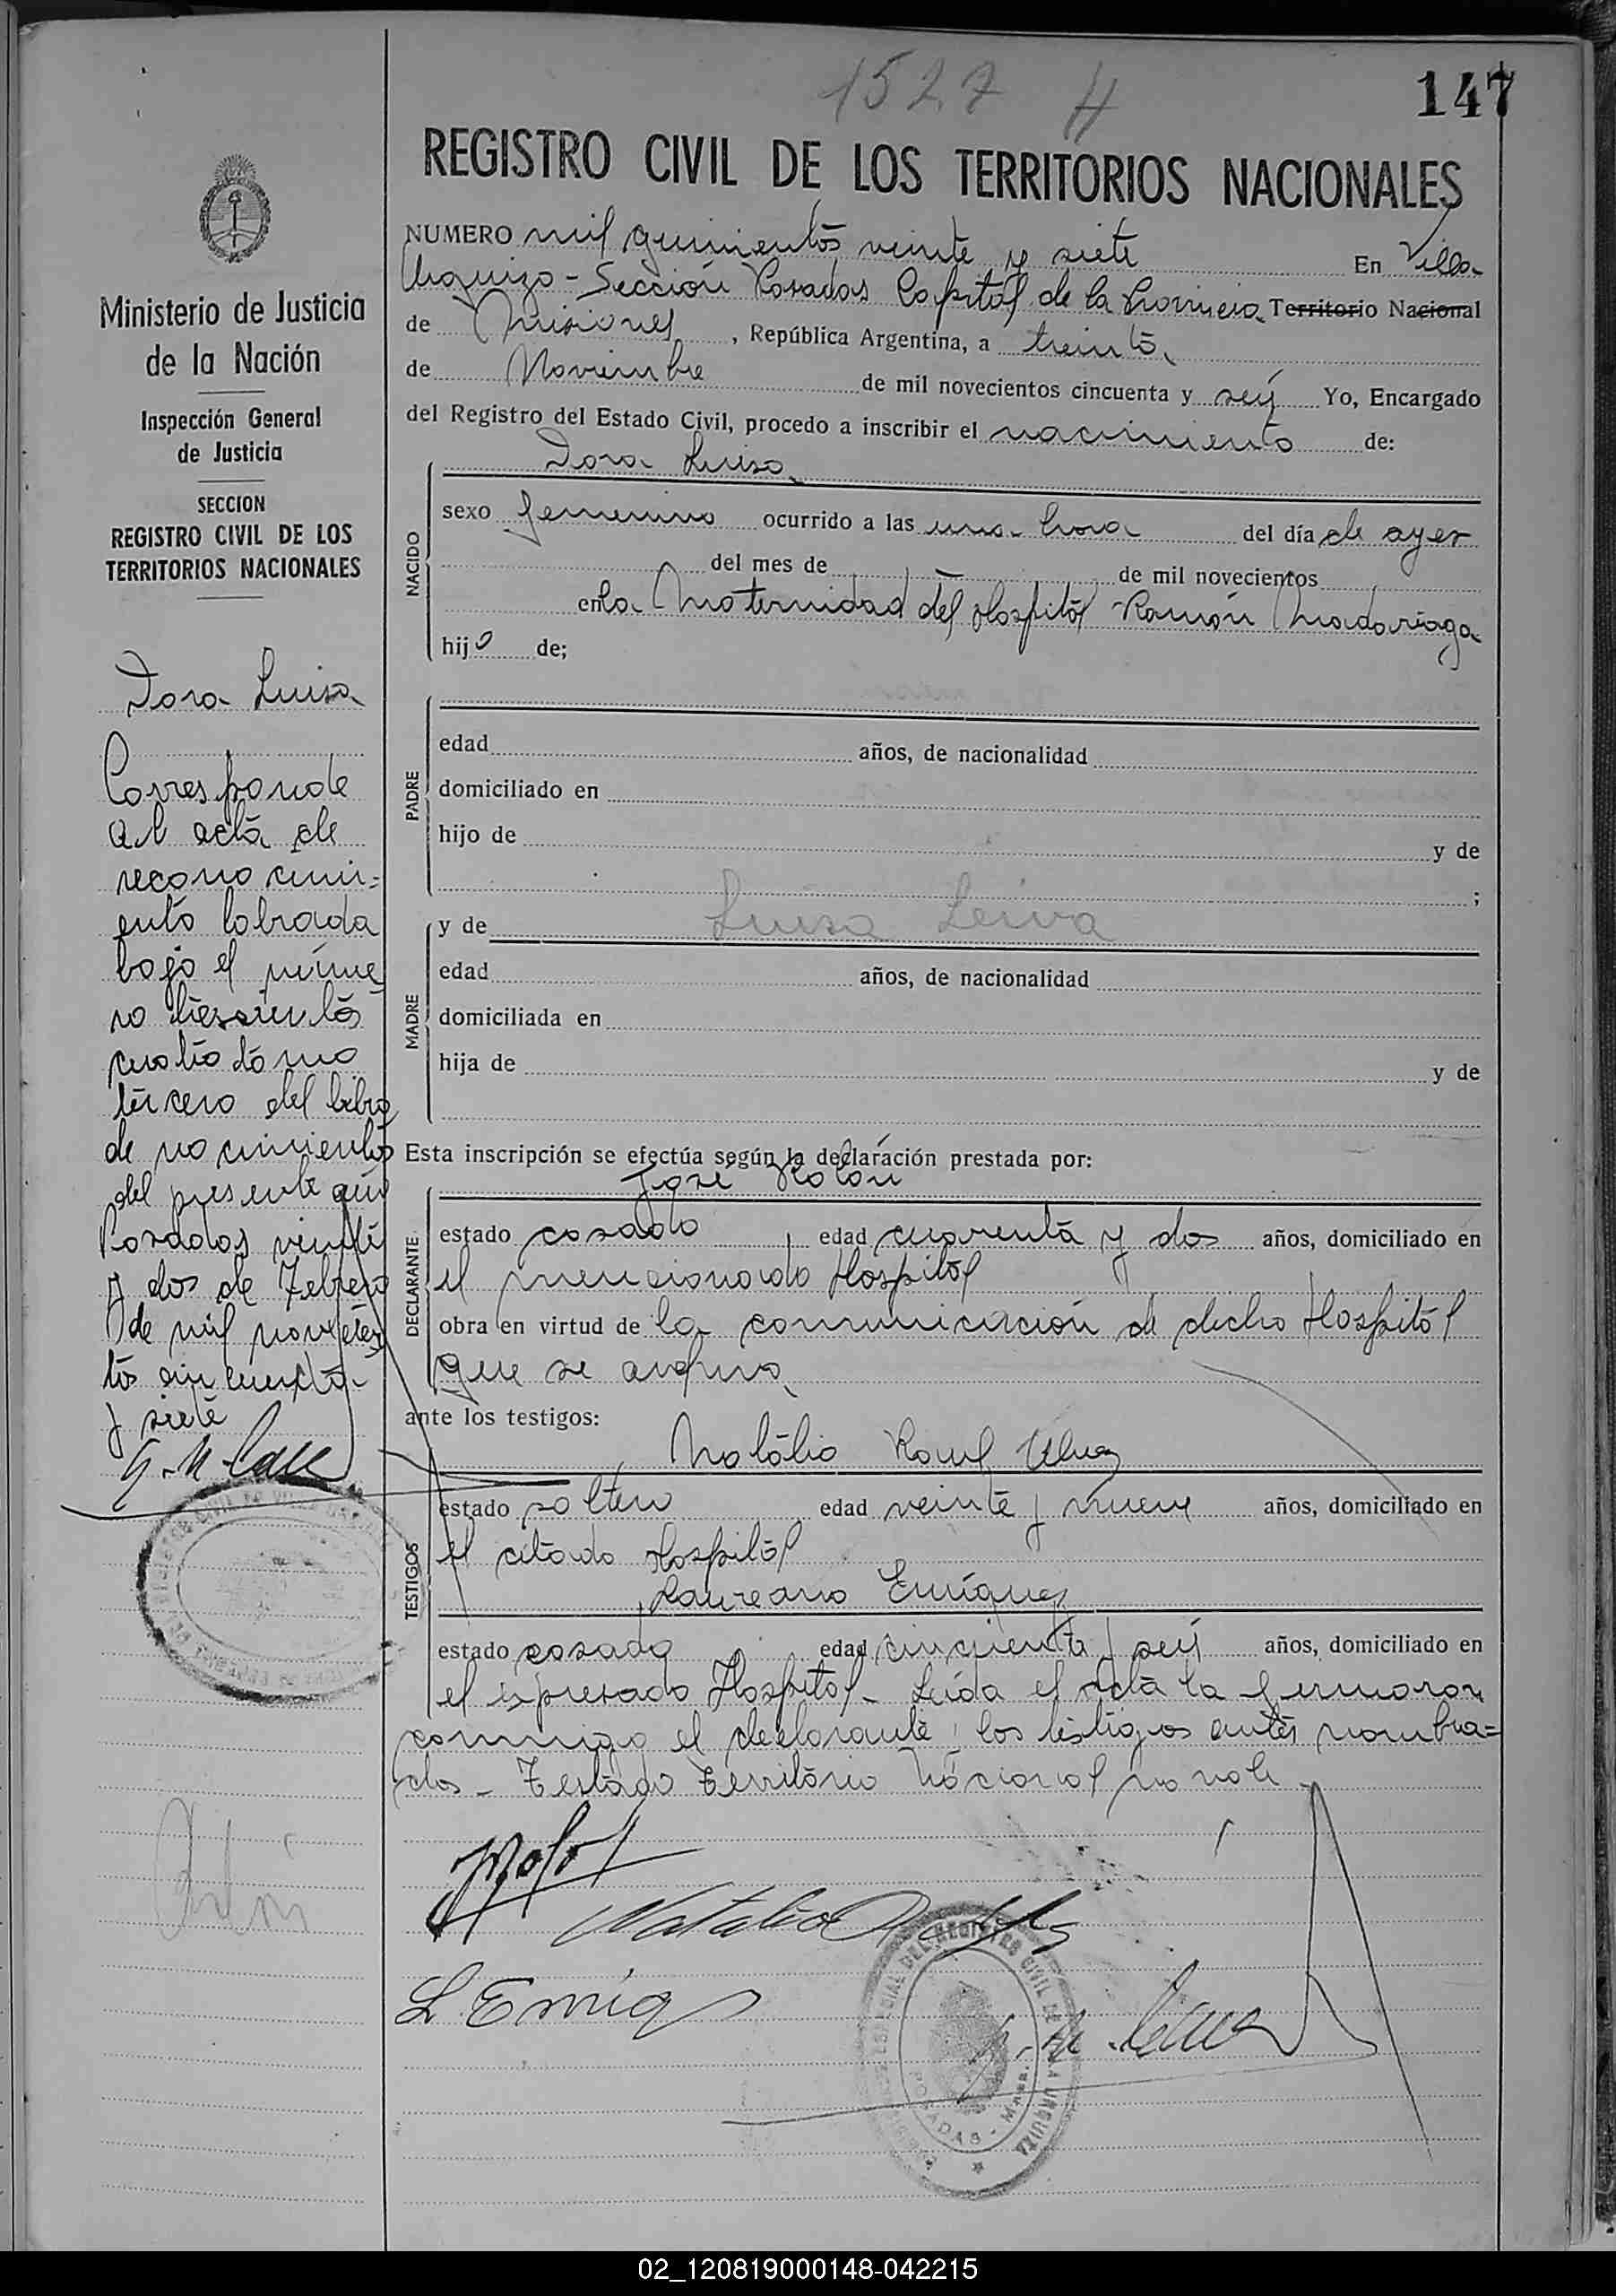 1527 H
147
REGISTRO CIVIL DE LOS TERRITORIOS NACIONALES
NUMERO mil quinientos veinte y siete En Villa
Urquiza - Sección Posadas Capital de la Provincia Territorio Nacional
de Misiones, República Argentina, a treinta
de Noviembre de mil novecientos cincuenta y seis Yo, Encargado
del Registro del Estado Civil, procedo a inscribir el nacimiento de:
NACIDO
Dora Luisa
sexo femenino ocurrido a las una hora del día de ayer
del mes de — de mil novecientos
en la Maternidad del Hospital Ramón Madariaga
hij o de;
PADRE
edad años, de nacionalidad
domiciliado en
hijo de y de
;
MADRE
y de Luisa Leiva
edad años, de nacionalidad
domiciliada en
hija de y de
Esta inscripción se efectúa según la declaración prestada por:
DECLARANTE
José Rolón
estado casado, edad cuarenta y dos años, domiciliado en
el mencionado Hospital
obra en virtud de la comunicación de dicho Hospital
que se archiva
ante los testigos:
TESTIGOS
Natalio Raul
estado soltero edad veinte y nueve años, domiciliado en
el citado Hospital
Laureano Enriquez
estado casado edad cincuenta y seis años, domiciliado en
el expresado Hospital - Leída el acta la firmaron
conmigo el declarante y los testigos antes nombra=
dos - Testado Territorio Nacional no vale -
Ministerio de Justicia
de la Nación
Inspección General
de Justicia
SECCION
REGISTRO CIVIL DE LOS
TERRITORIOS NACIONALES
Dora Luisa
Corresponde
al acta de
reconocimi=
ento labrada
bajo el núme
ro trescientos
cuatro tomo
tercero del libro
de nacimientos
del presente año
Posadas veinte
y dos de Febrero
de mil novecien
tos cincuenta
y siete
L Enriq
DEL REGISTRO CIVIL DE VILLA URQUIZA
POSADAS - Mnes.
02_120819000148-042215